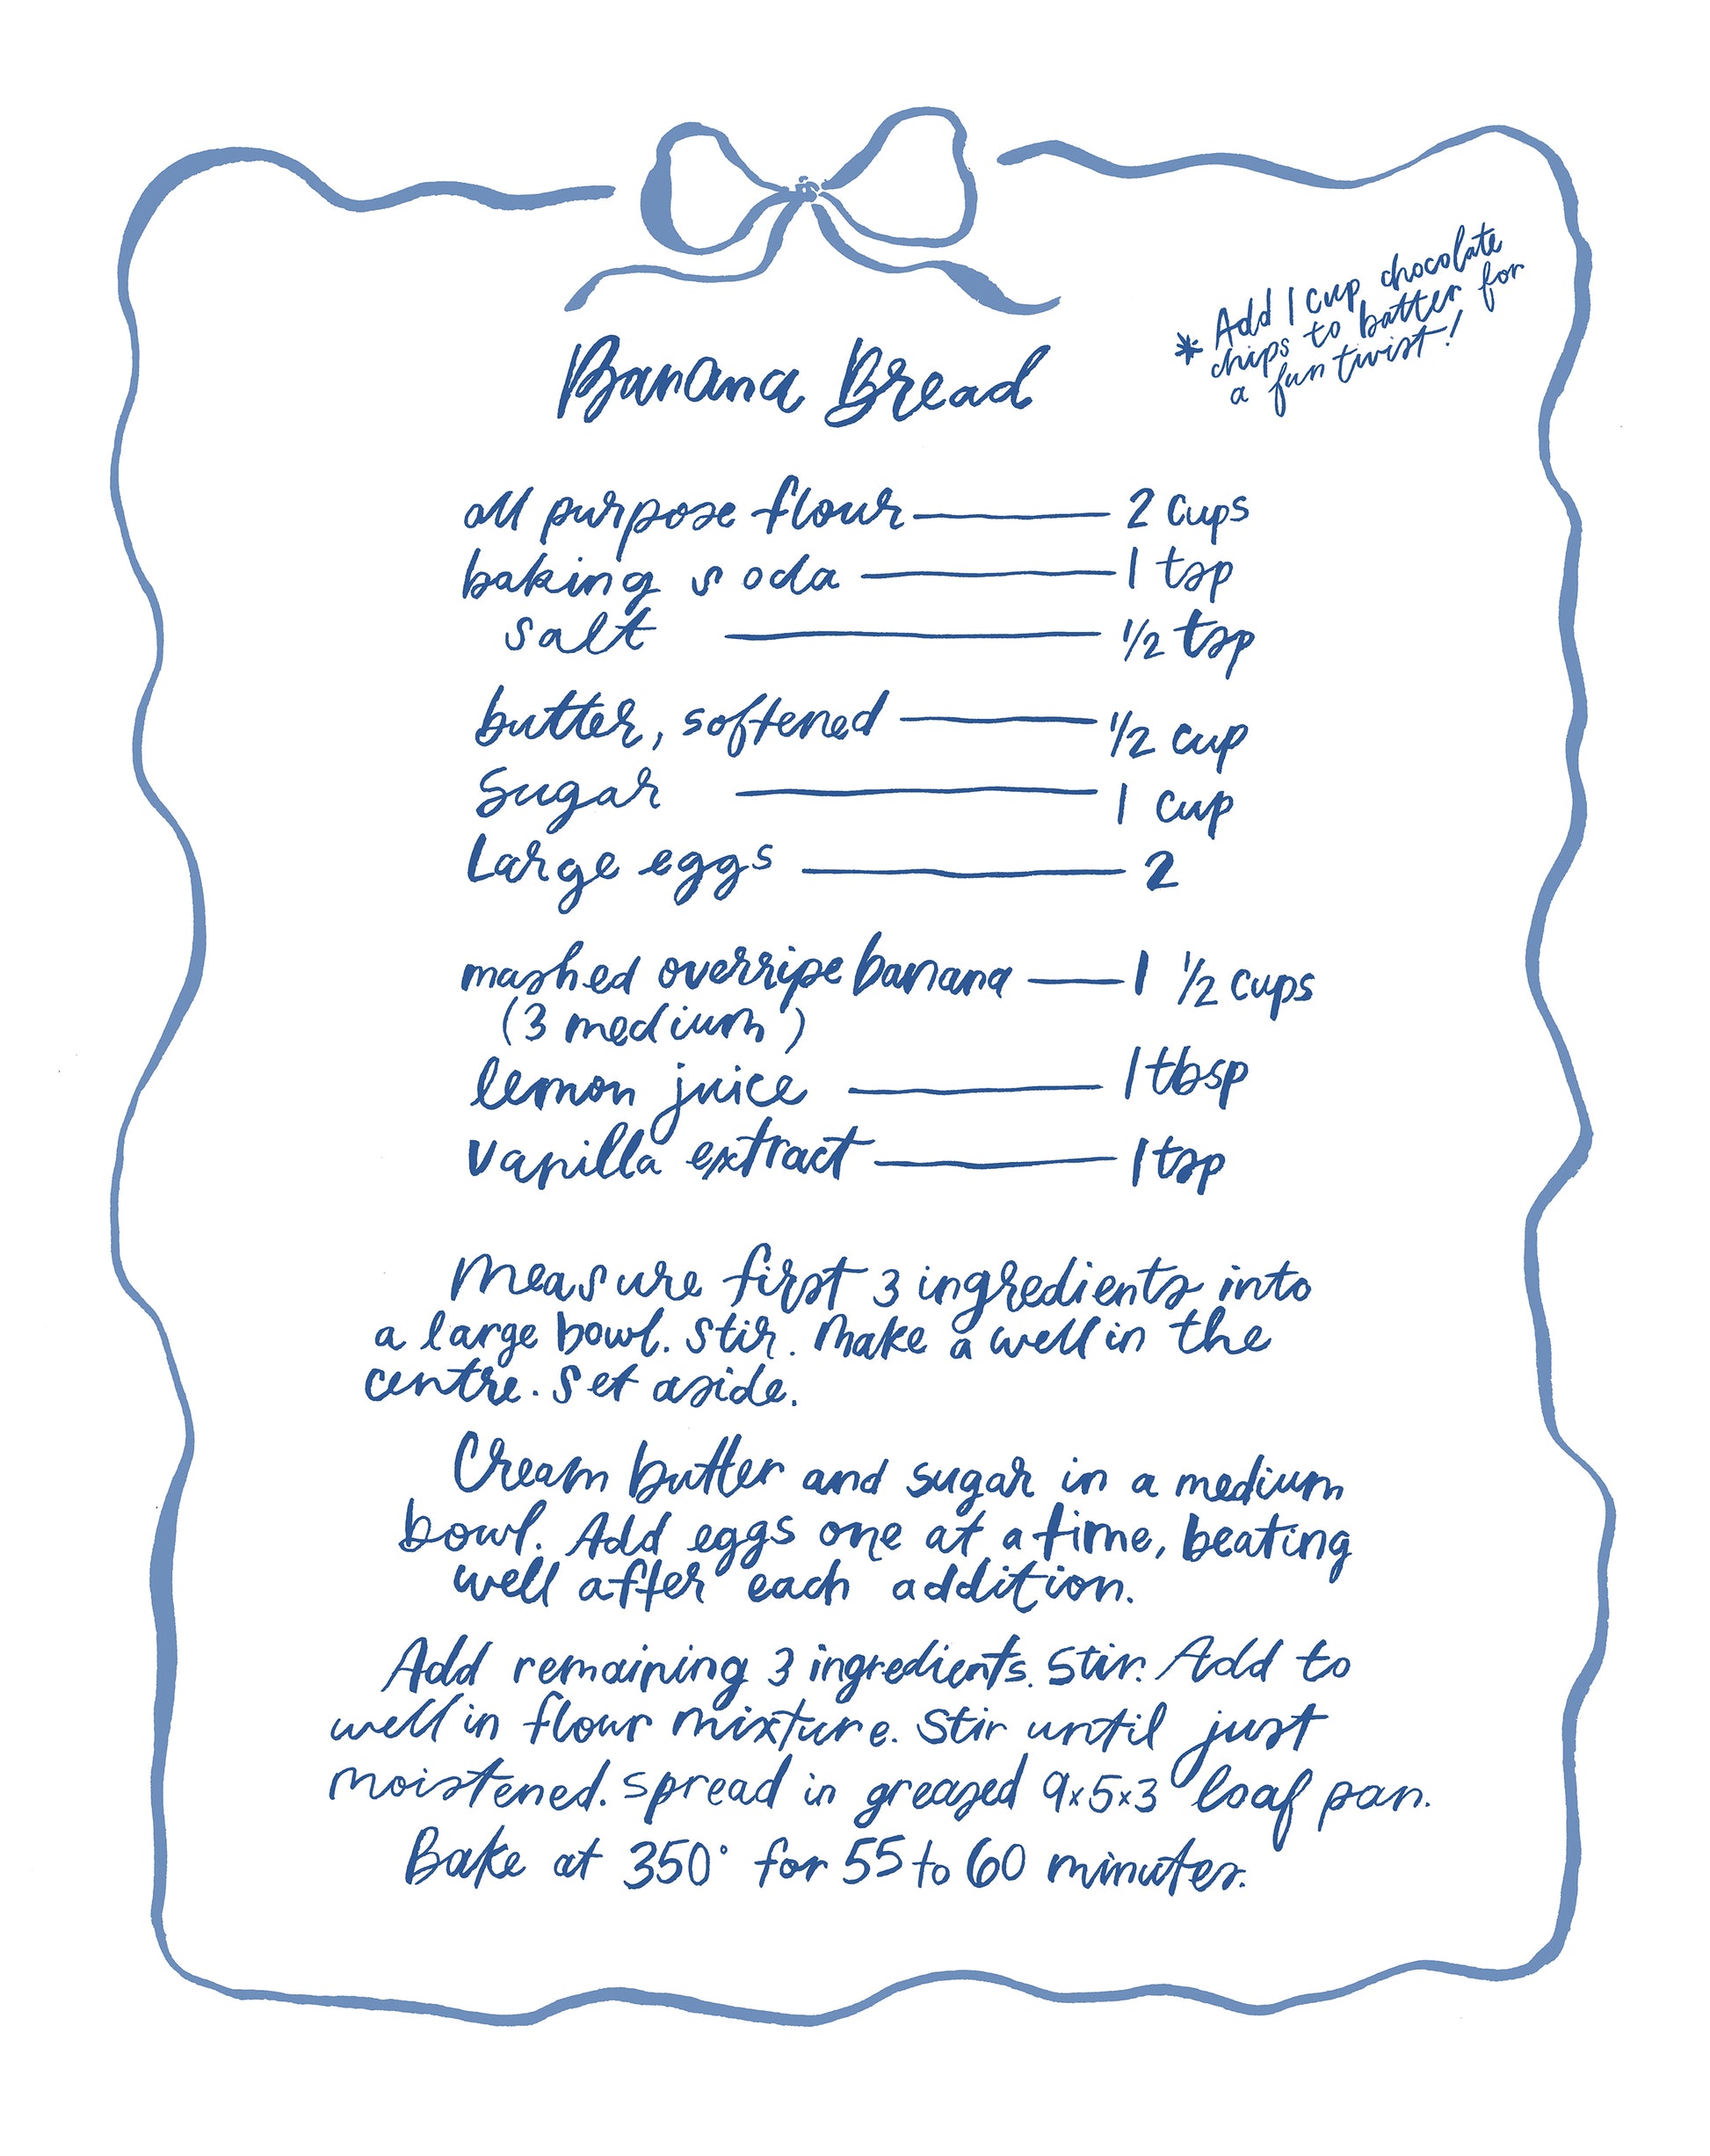 Banana Bread
* Add 1 cup chocolate
chips to batter for
a fun twist!
all purpose flour 2 cups
baking soda 1 tsp
salt 1/2 tsp
butter, softened 1/2 cup
Sugar 1 cup
Large eggs 2
mashed overripe banana 1 1/2 cups
(3 medium)
lemon juice 1 tbsp
vanilla extract 1 tsp
Measure first 3 ingredients into
a large bowl. Stir. Make a well in the
centre. Set aside.
Cream butter and sugar in a medium
bowl. Add eggs one at a time, beating
well after each addition.
Add remaining 3 ingredients. Stir. Add to
well in flour mixture. Stir until just
moistened. spread in greased 9x5x3 loaf pan.
Bake at 350° for 55 to 60 minutes.